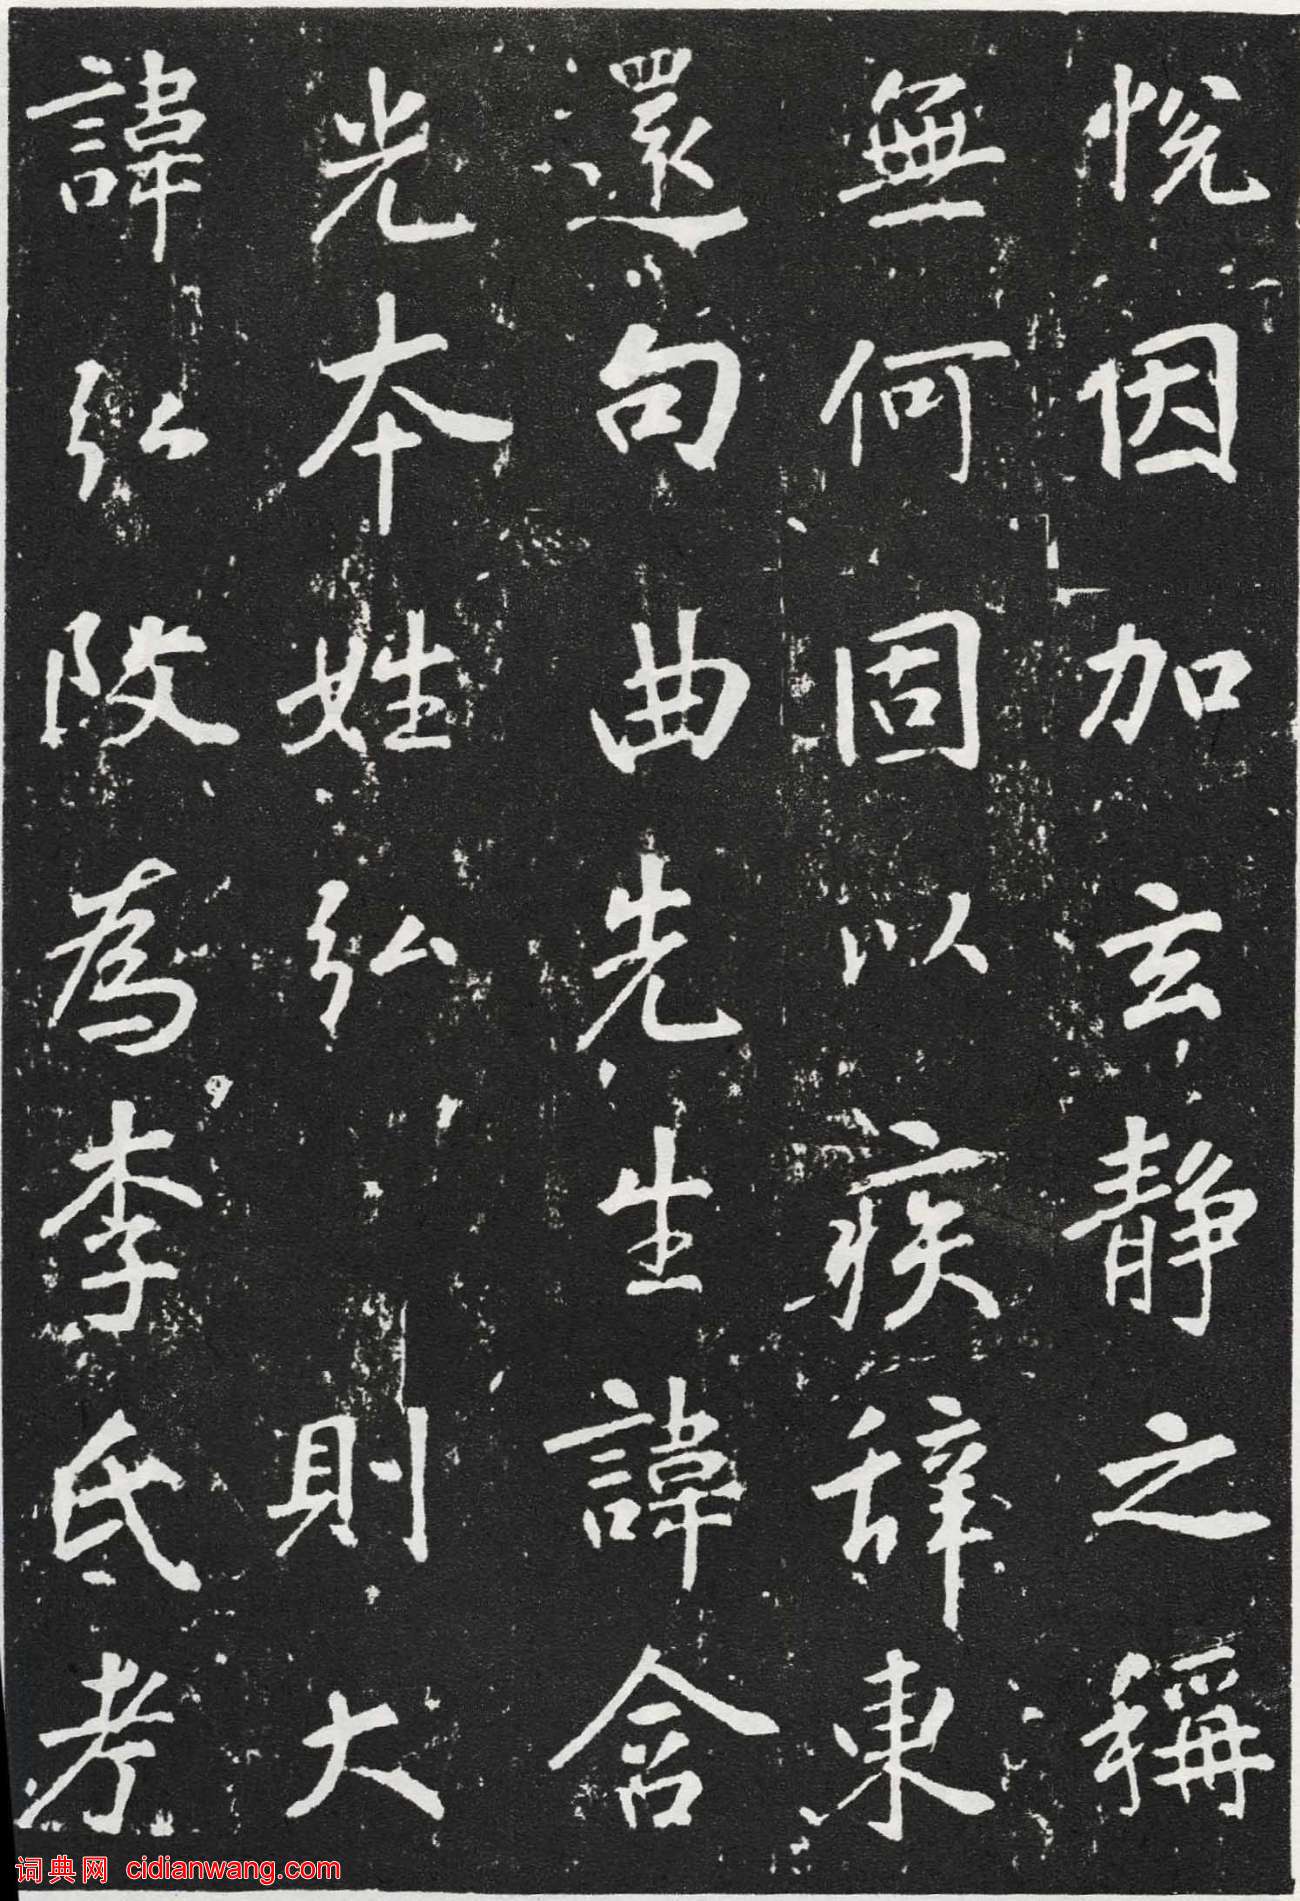 悦因加玄静之稱
無何固以疾辞東
還句曲先生諱含
光本姓弘則大
諱弘改為李氏考
词典网 cidianwang.com